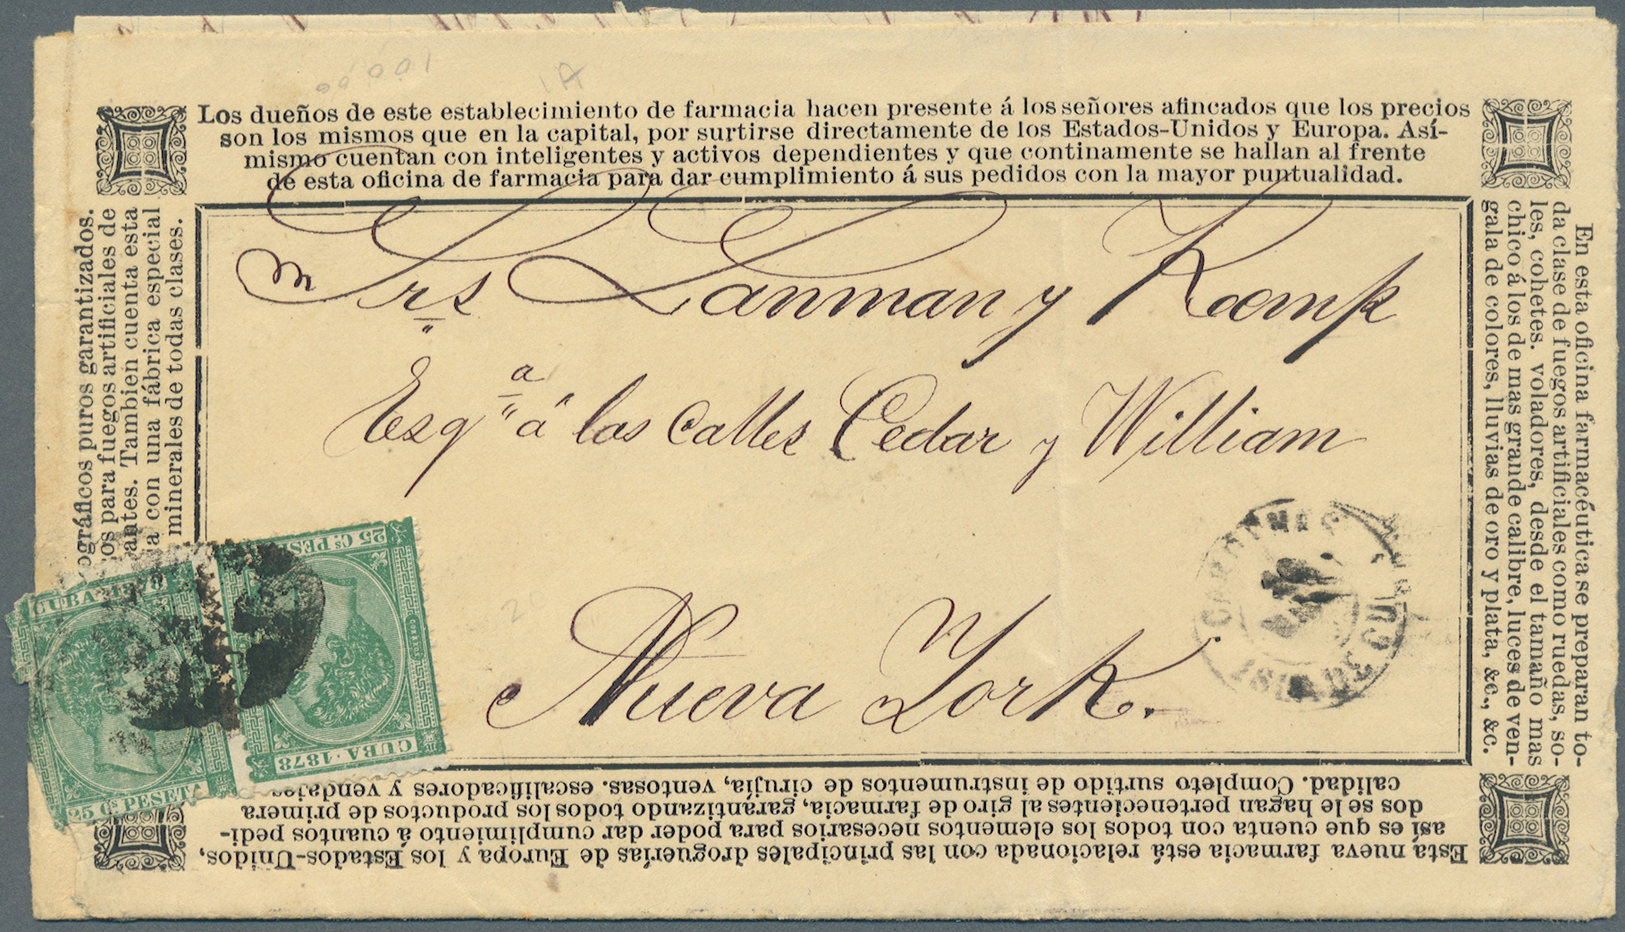 Los dueños de este establecimiento de farmacia hacen presente á los señores afincados que los precios
son los mismos que en la capital, por surtirse directamente de los Estados-Unidos y Europa. Así-
mismo cuentan con inteligentes y activos dependientes y que continamente se hallan al frente
de esta oficina de farmacia para dar cumplimiento á sus pedidos con la mayor puntualidad.
En esta oficina farmacéutica se preparan to-
da clase de fuegos artificiales como ruedas, so-
les, cohetes. voladores, desde el tamaño mas
chico á los de mas grande calibre, luces de ven-
gala de colores, lluvias de oro y plata, &c., &c.
Esta nueva farmacia está relacionada con las principales droguerías de Europa y los Estados-Unidos,
así es que cuenta con todos los elementos necesarios para poder dar cumplimiento á cuantos pedi-
dos se le hagan pertenecientes al giro de farmacia, garantizando todos los productos de primera
calidad. Completo surtido de instrumentos de cirujía, ventosas. escalificadores y vendajes
ográficos puros garantizados.
os para fuegos artificiales de
antes. Tambien cuenta esta
ia con una fábrica especial
minerales de todas clases.
Srs Lanman y Kemp
Esqª á las calles Cedar y William
Nueva York.
CARDENAS
ISLA DE CUBA
25 Cs PESETA
CUBA 1878
25 Cs PESE
CORREOS
CUBA·1878